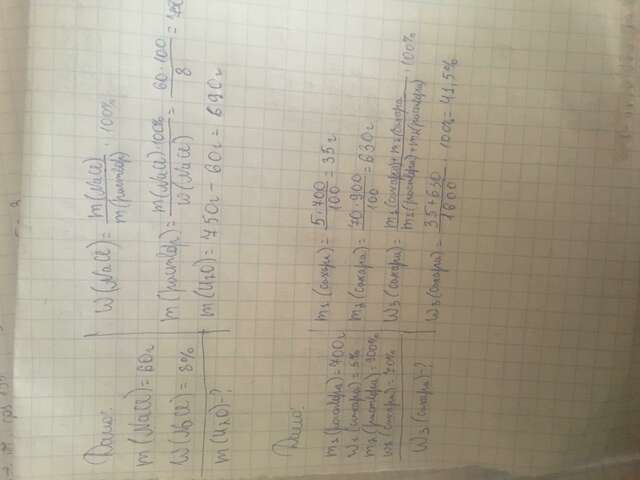 Дано:
m(NaCl)=60г
W(NaCl)=8%
m(H₂O)-?
W(NaCl)= m(NaCl)/m(раствор) · 100%
m(раствор)= m(NaCl)·100%/W(NaCl) = 60·100/8 = 750
m(H₂O)=750г-60г=690г
Дано:
m₁(раствора)=700г
W₁(сахара)=5%
m₂(раствора)=900г
W₂(сахара)=70%
W₃(сахара)-?
m₁(сахара)= 5·700/100 =35г
m₂(сахара)= 70·900/100 =630г
W₃(сахара)= m₁(сахара)+m₂(сахара)/m₁(раствора)+m₂(раствора) · 100%
W₃(сахара)= 35+630/1600 · 100%=41,5%